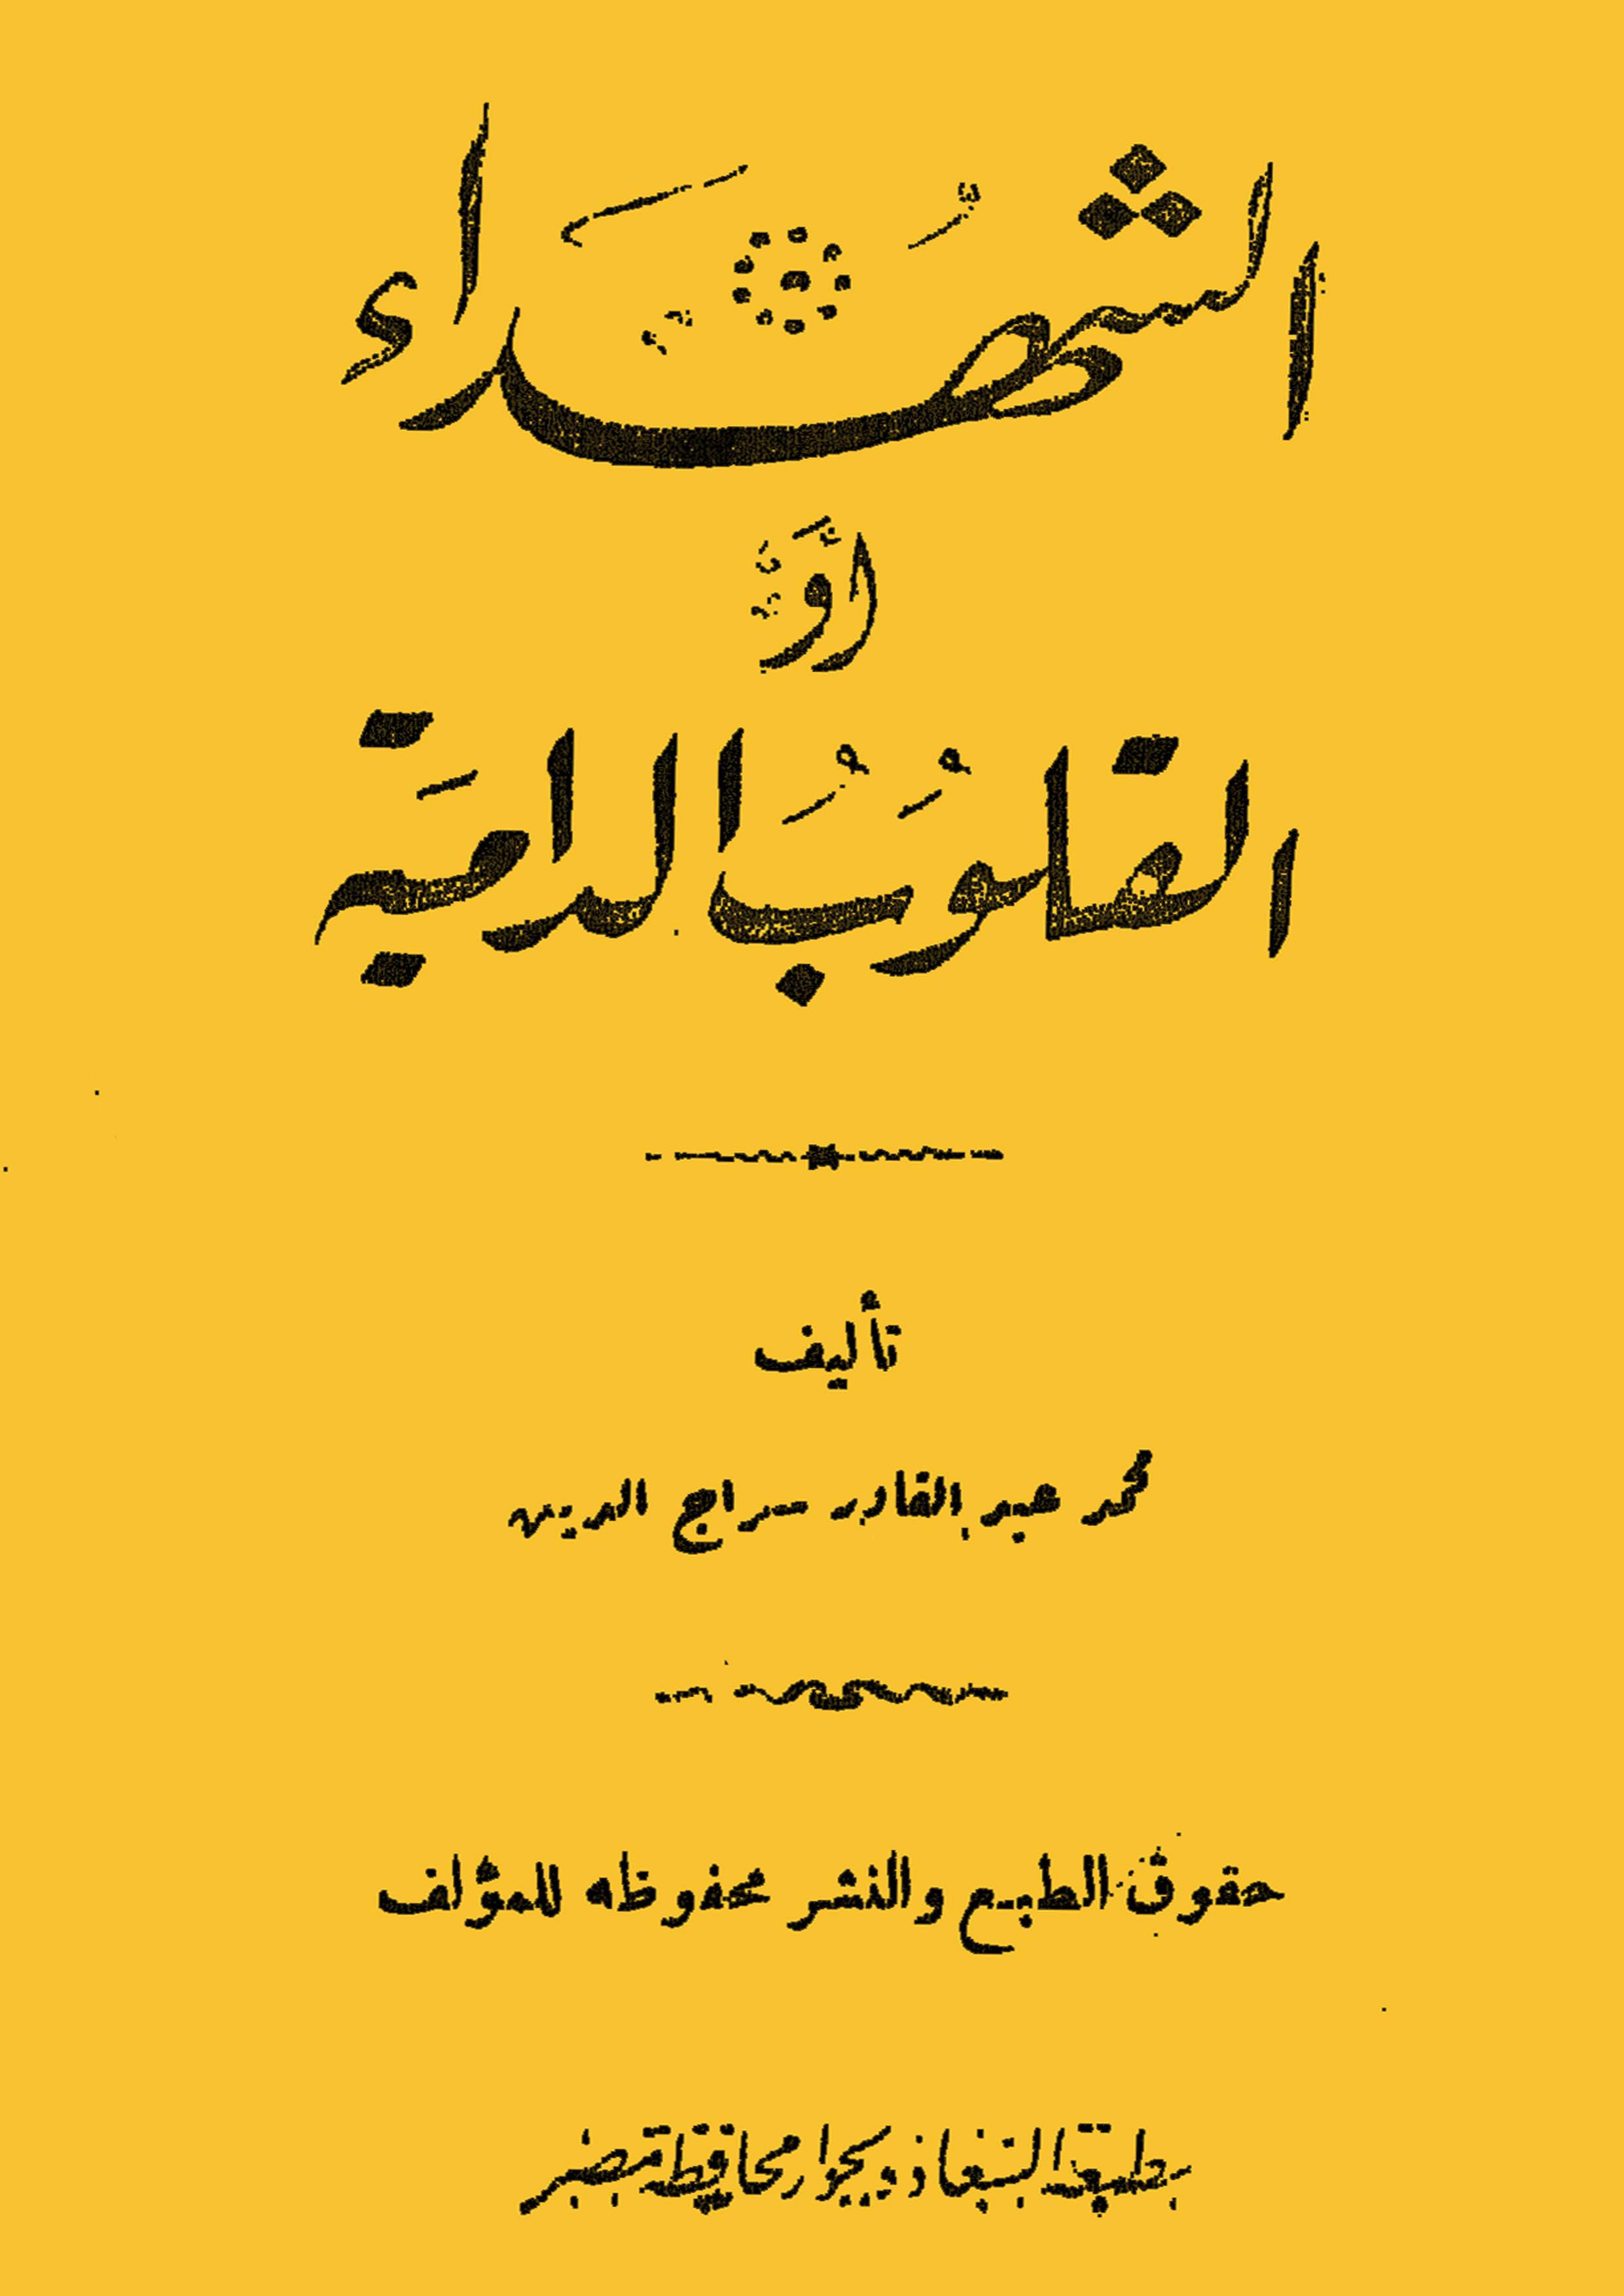 الشهداء
أو
القلوب الدامية
تأليف
محمد عبد القادر سراج الدين
حقوق الطبع والنشر محفوظه للمؤلف
بجوار محافظة مصر